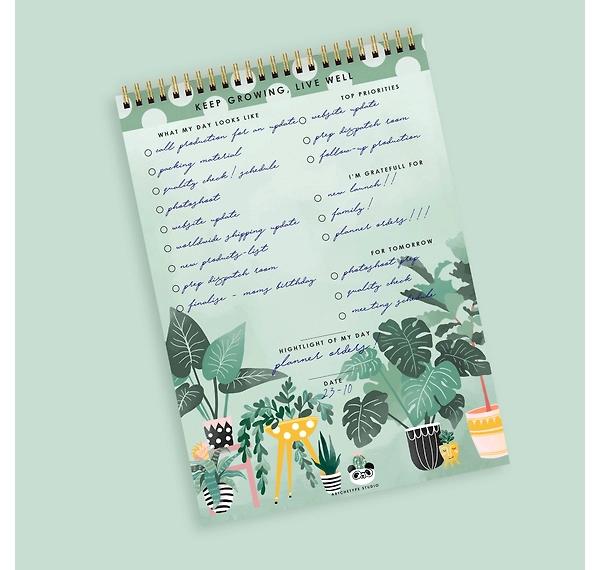 KEEP GROWING, LIVE WELL
WHAT MY DAY LOOKS LIKE
call production for an update
packing material
quality check! schedule
photoshoot
website update
worldwide shipping update
new products-list
prep dispatch room
finalise - moms birthday
TOP PRIORITIES
website update
prep dispatch room
follow-up production
I'M GRATEFULL FOR
new launch!!
family!
planner orders!!!
FOR TOMORROW
photoshoot prep
quality check
meeting schedule
HIGHTLIGHT OF MY DAY
planner orders!
DATE
23-10
ARTCHETYPE STUDIO